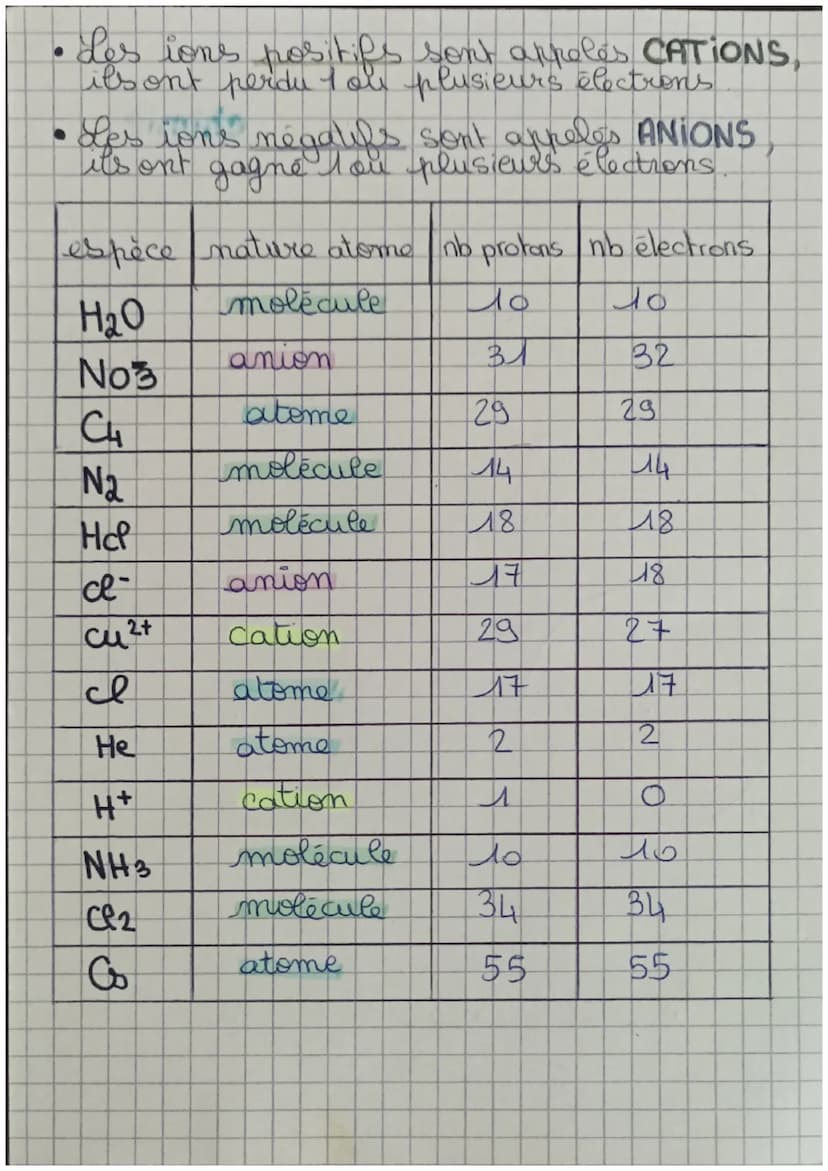 • Les ions positifs sont appelés CATIONS,
ils ont perdu 1 ou plusieurs électrons.
• Les ions négatifs sont appelés ANIONS,
ils ont gagné 1 ou plusieurs électrons.
espèce nature atome nb protons nb électrons
H2O molécule 10 10
NO3 anion 31 32
Cu atome 29 29
N2 molécule 14 14
HCl molécule 18 18
Cl- anion 17 18
Cu2+ cation 29 27
Cl atome 17 17
He atome 2 2
H+ cation 1 0
NH3 molécule 10 10
Cl2 molécule 34 34
Cs atome 55 55